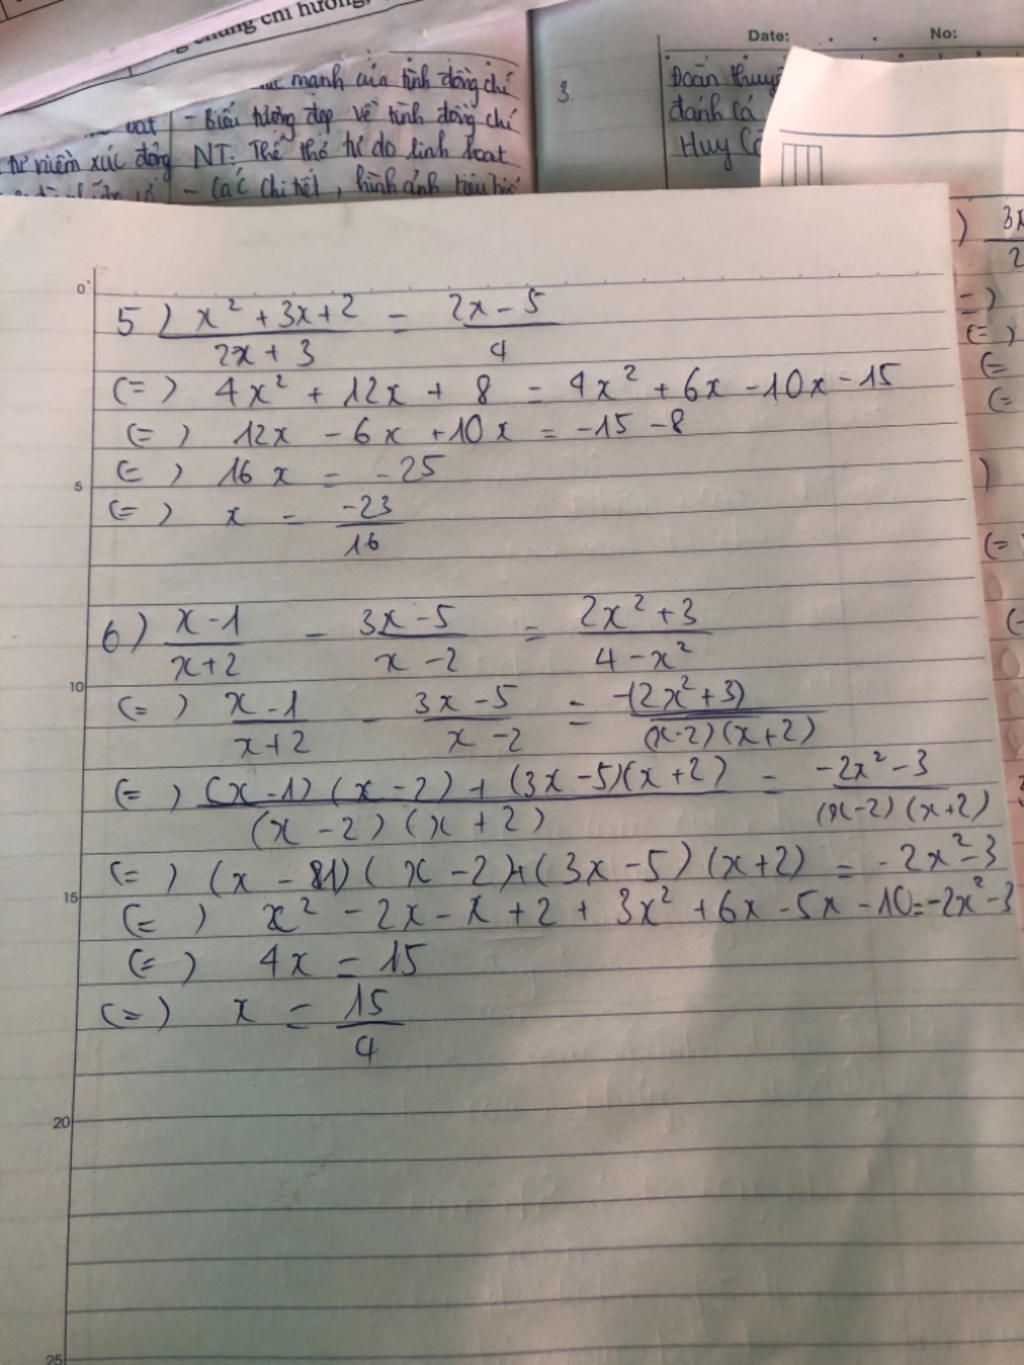 chung chỉ hướng,
mạnh của tình đồng chí
- Biểu tượng đẹp về tình đồng chí
từ niềm xúc động NT: Thể thơ tự do linh hoạt
- Các chi tiết, hình ảnh
3.
Date: . . No:
Đoàn thuyề
đánh cá
Huy Cậ
0
5) (x² + 3x + 2)/(2x + 3) = (2x - 5)/4
(=) 4x² + 12x + 8 = 4x² + 6x - 10x - 15
(=) 12x - 6x + 10x = -15 - 8
5
(=) 16x = -25
(=) x = -23/16
6) (x - 1)/(x + 2) - (3x - 5)/(x - 2) = (2x² + 3)/(4 - x²)
10
(=) (x - 1)/(x + 2) - (3x - 5)/(x - 2) = -(2x² + 3)/((x - 2)(x + 2))
(=) ((x - 1)(x - 2) + (3x - 5)(x + 2))/((x - 2)(x + 2)) = (-2x² - 3)/((x - 2)(x + 2))
(=) (x - 1)(x - 2) + (3x - 5)(x + 2) = -2x² - 3
15
(=) x² - 2x - x + 2 + 3x² + 6x - 5x - 10 = -2x² - 3
(=) 4x = 15
(=) x = 15/4
20
25